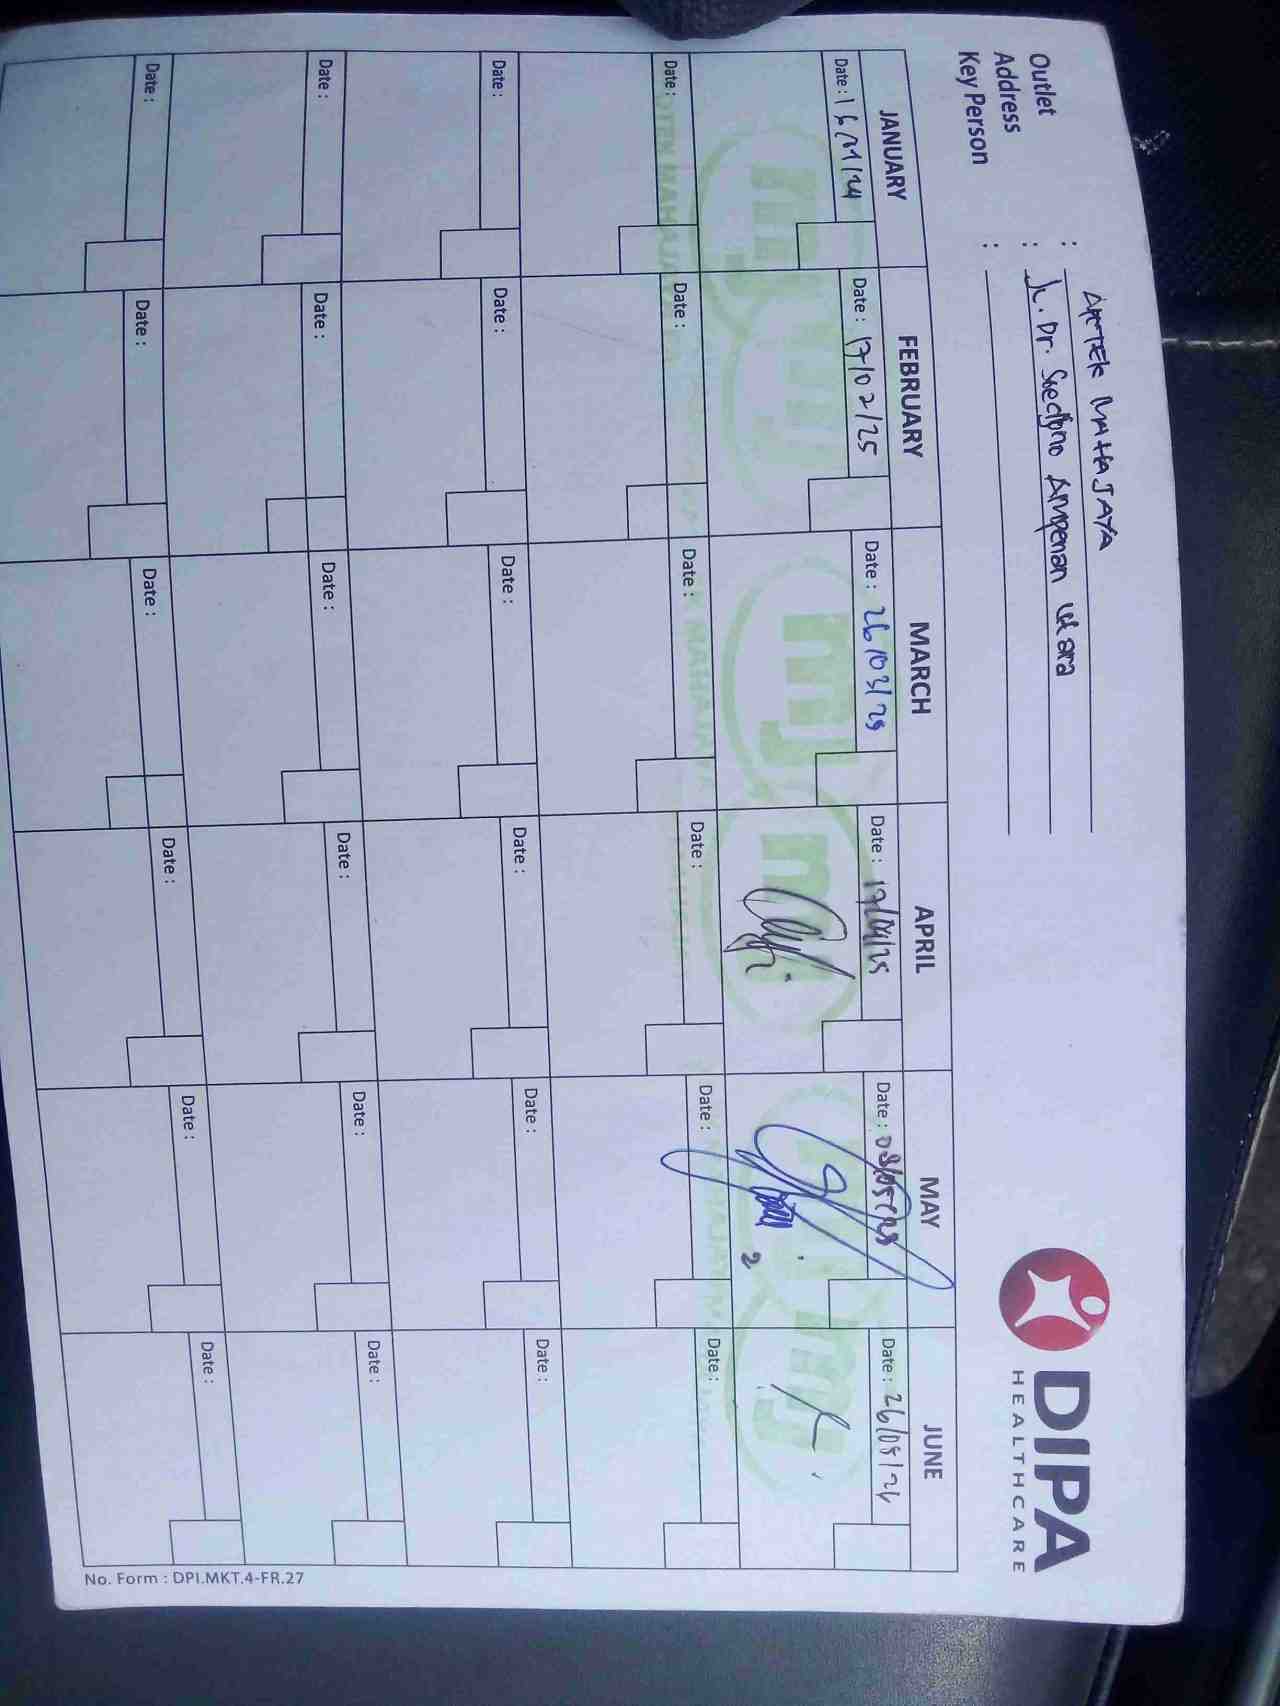 Outlet : APOTEK MAHAJAYA
Address : JL. Dr. Soedjono Ampenan Utara
Key Person :
DIPA
HEALTHCARE
JANUARY FEBRUARY MARCH APRIL MAY JUNE
Date : Date : 17/02/25 Date : 26/03/25 Date : 17/04/25 Date : Date :
mJ mJ mJ mJ mJ mJ
2
Date : Date : Date : Date : Date : Date :
Date : Date : Date : Date : Date : Date :
Date : Date : Date : Date : Date : Date :
Date : Date : Date : Date : Date : Date :
No. Form : DPI.MKT.4-FR.27